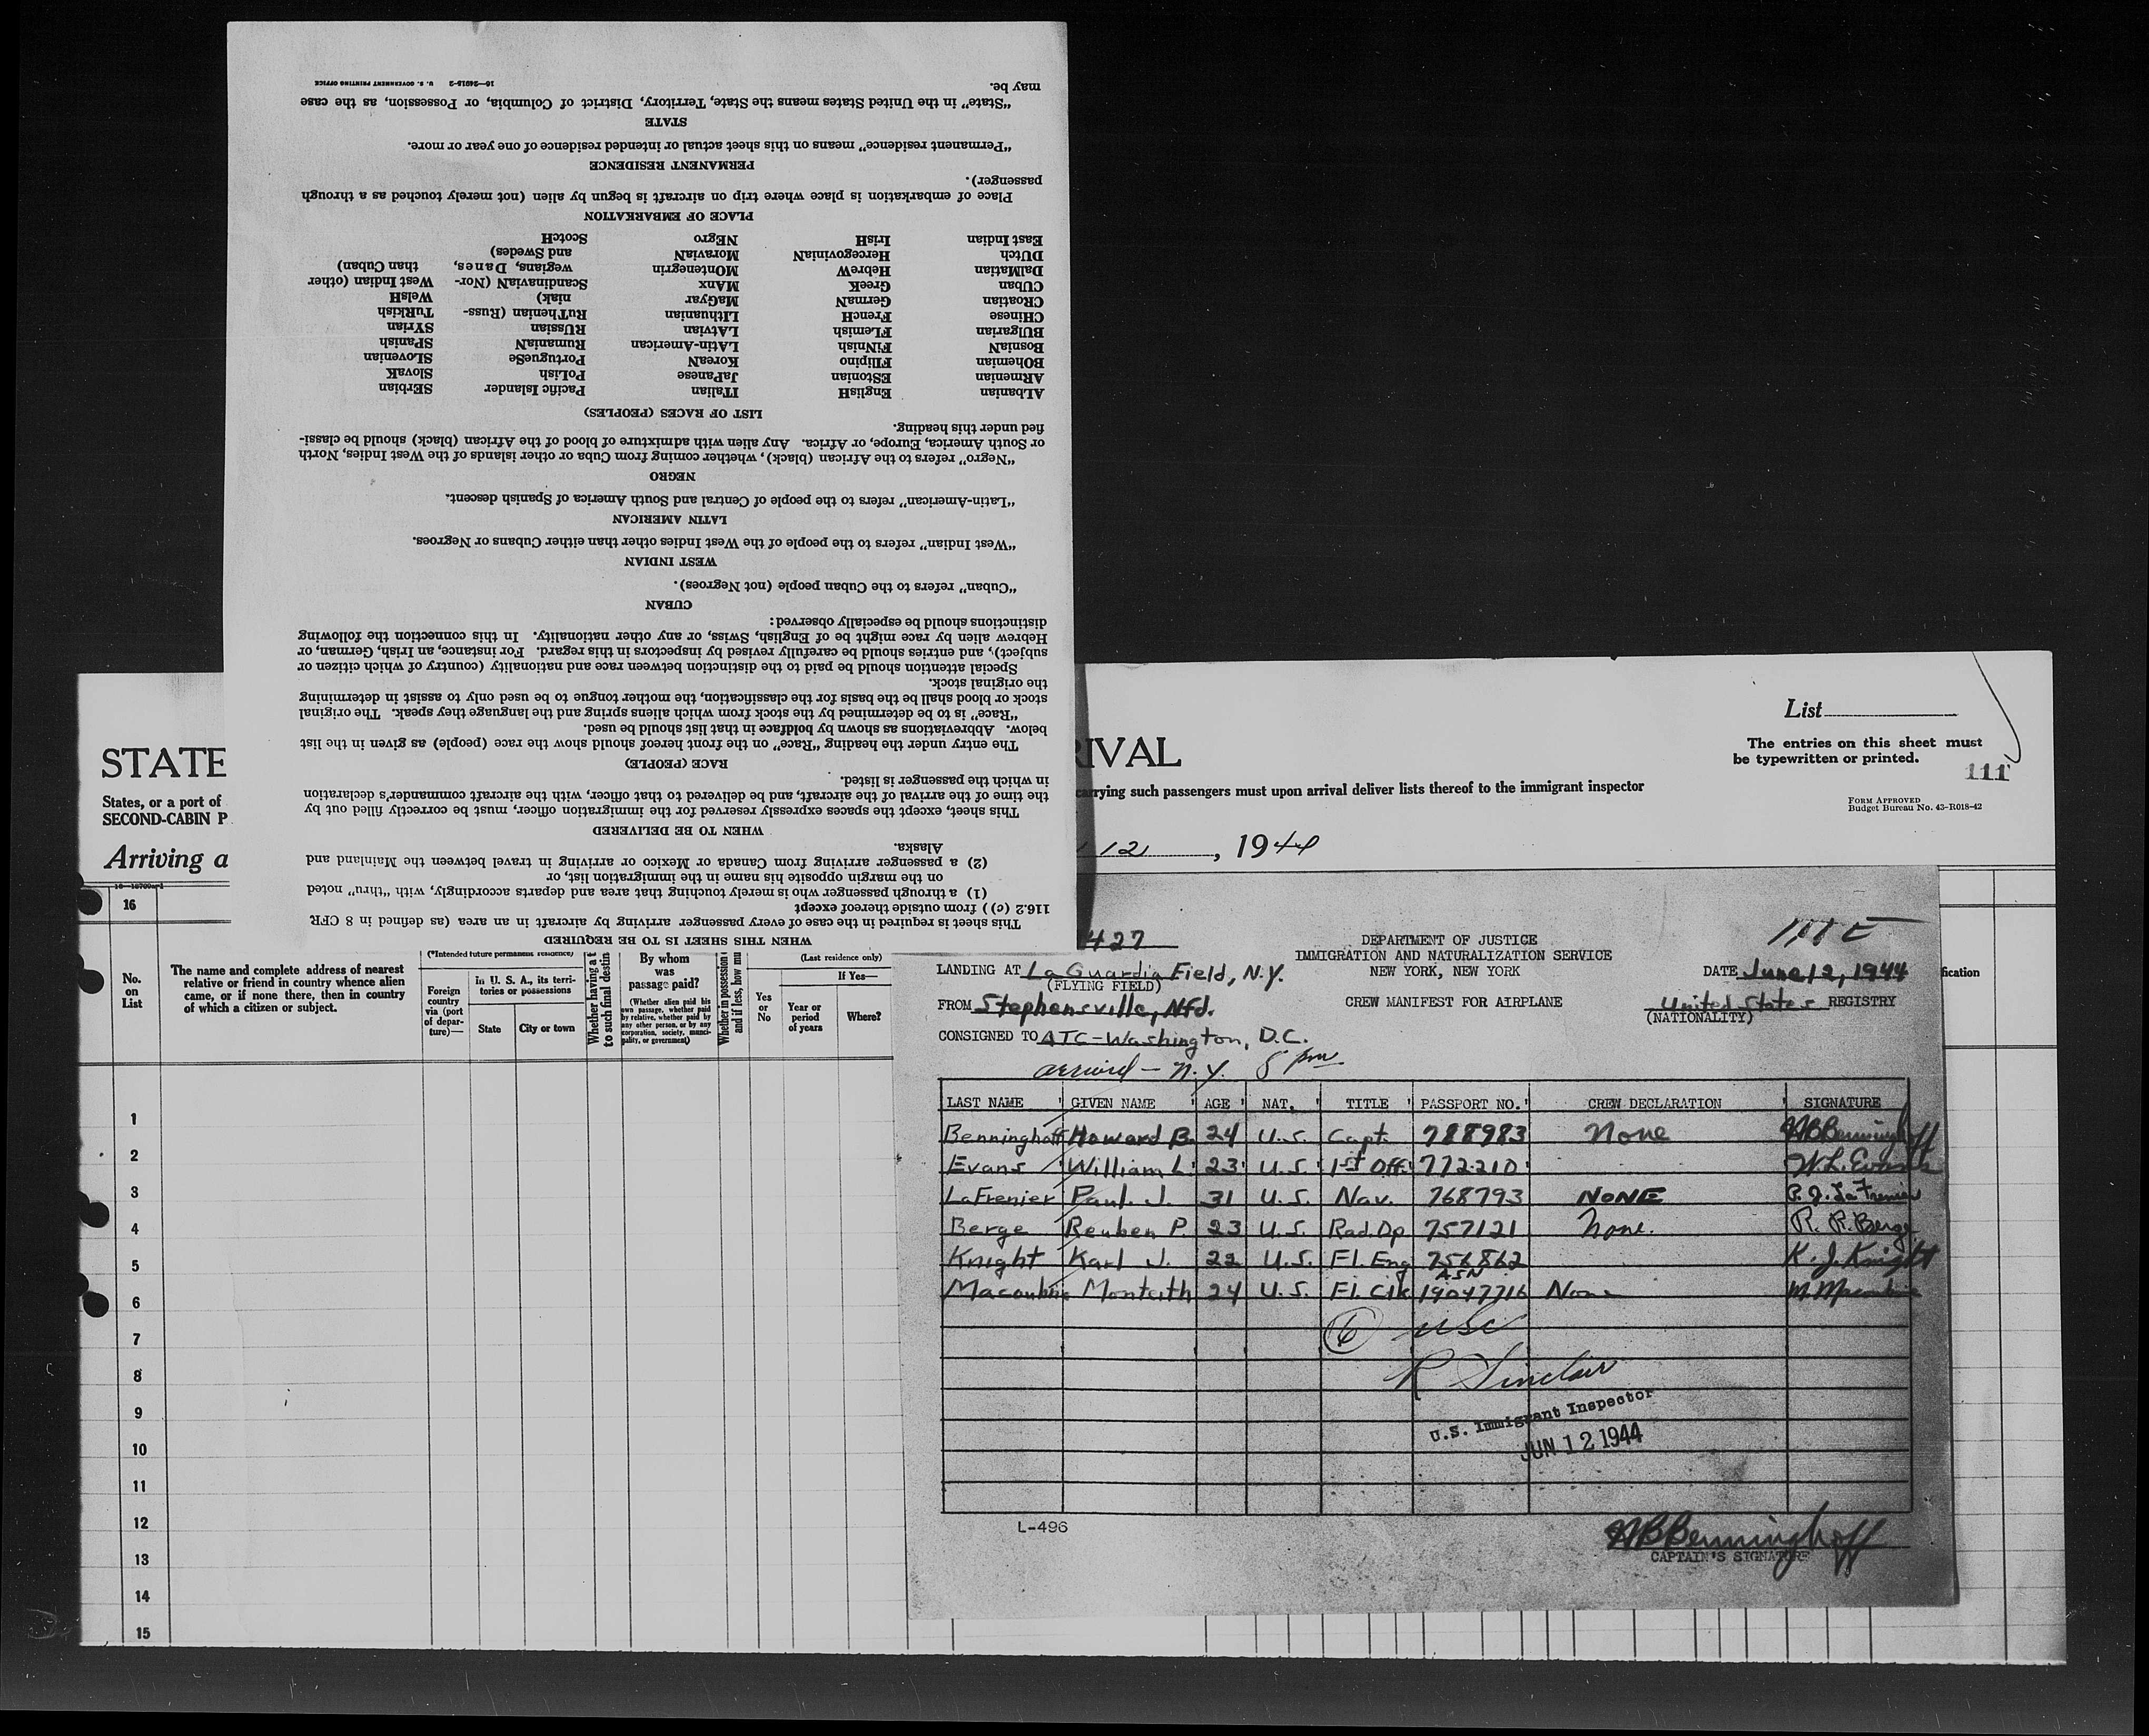 WHEN THIS SHEET IS TO BE REQUIRED
This sheet is required in the case of every passenger arriving by aircraft in an area (as defined in 8 CFR
116.2 (c) ) from outside thereof except
(1) a through passenger who is merely touching that area and departs accordingly, with “thru” noted
on the margin opposite his name in the immigration list, or
(2) a passenger arriving from Canada or Mexico or arriving in travel between the Mainland and
Alaska.
WHEN TO BE DELIVERED
This sheet, except the spaces expressly reserved for the immigration officer, must be correctly filled out by
the time of the arrival of the aircraft, and be delivered to that officer, with the aircraft commander's declaration
in which the passenger is listed.
RACE (PEOPLE)
The entry under the heading “Race” on the front hereof should show the race (people) as given in the list
below. Abbreviations as shown by boldface in that list should be used.
“Race” is to be determined by the stock from which aliens spring and the language they speak. The original
stock or blood shall be the basis for the classification, the mother tongue to be used only to assist in determining
the original stock.
Special attention should be paid to the distinction between race and nationality (country of which citizen or
subject), and entries should be carefully revised by inspectors in this regard. For instance, an Irish, German, or
Hebrew alien by race might be of English, Swiss, or any other nationality. In this connection the following
distinctions should be especially observed:
CUBAN
“Cuban” refers to the Cuban people (not Negroes).
WEST INDIAN
“West Indian” refers to the people of the West Indies other than either Cubans or Negroes.
LATIN AMERICAN
“Latin-American” refers to the people of Central and South America of Spanish descent.
NEGRO
“Negro” refers to the African (black), whether coming from Cuba or other islands of the West Indies, North
or South America, Europe, or Africa. Any alien with admixture of blood of the African (black) should be classi-
fied under this heading.
LIST OF RACES (PEOPLES)
ALbanian EnglisH ITalian Pacific Islander SErbian
ARmenian EStonian JaPanese PoLish SlovaK
BOhemian FIlipino KoreaN PortugueSe SLOvenian
BosniaN FiNnish LAtin-American RumaniaN SPanish
BUlgarian FLemish LAtvian RUssian SYrian
CHinese FrencH LIthuanian RuThenian (Russ- TuRkish
CRoatian GermaN MaGyar niak) WelsH
CUban GreeK MAnx ScandinaviaN (Nor- West Indian (other
DalMatian HebreW MOntenegrin wegians, Danes, than Cuban)
DUtch HercegoviniaN MoraviaN and Swedes)
East Indian IrisH NEgro ScotcH
PLACE OF EMBARKATION
Place of embarkation is place where trip on aircraft is begun by alien (not merely touched as a through
passenger).
PERMANENT RESIDENCE
“Permanent residence” means on this sheet actual or intended residence of one year or more.
STATE
“State” in the United States means the State, Territory, District of Columbia, or Possession, as the case
may be.
16—24915-2 U. S. GOVERNMENT PRINTING OFFICE
List
STATE
RIVAL
The entries on this sheet must
be typewritten or printed.
111
States, or a port of
carrying such passengers must upon arrival deliver lists thereof to the immigrant inspector
SECOND-CABIN P
FORM APPROVED
Budget Bureau No. 43-R018-42
Arriving a
12, 1944
16
No.
on
List
The name and complete address of nearest
relative or friend in country whence alien
came, or if none there, then in country
of which a citizen or subject.
(*Intended future permanent residence)
Foreign
country
via (port
of depar-
ture)—
In U. S. A., its terri-
tories or possessions
State
City or town
Whether having a t
to such final destin
By whom
was
passage paid?
(Whether alien paid his
own passage, whether paid
by relative, whether paid by
any other person, or by any
corporation, society, munici-
pality, or government)
Whether in possession
and if less, how mu
(Last residence only)
Yes
or
No
If Yes—
Year or
period
of years
Where?
fication
1
2
3
4
5
6
7
8
9
10
11
12
13
14
15
427
DEPARTMENT OF JUSTICE
IMMIGRATION AND NATURALIZATION SERVICE
NEW YORK, NEW YORK
LANDING AT La Guardia Field, N.Y.
(FLYING FIELD)
DATE June 12, 1944
FROM Stephensville, Nfd.
CREW MANIFEST FOR AIRPLANE
United States REGISTRY
(NATIONALITY)
CONSIGNED TO ATC-Washington, D.C.
arrived - N.Y. 8 pm
LAST NAME GIVEN NAME AGE NAT. TITLE PASSPORT NO. CREW DECLARATION SIGNATURE
Benninghoff Howard B. 24 U.S. Capt. 788983 None HBBenninghoff
Evans William L. 23 U.S. 1st Off. 772210 W.L. Evans
LaFrenier Paul J. 31 U.S. Nav. 768793 NONE P. J. LaFrenier
Berge Reuben P. 23 U.S. Rad. Op 757121 None. R. P. Berge
Knight Karl J. 22 U.S. Fl. Eng 756862 K. J. Knight
ASN
Macoubrie Monteith 24 U.S. Fl. Clk 19047716 None M. Macoubrie
6 USC
R Sinclair
U.S. Immigrant Inspector
JUN 12 1944
L-496
HBBenninghoff
CAPTAIN'S SIGNATURE